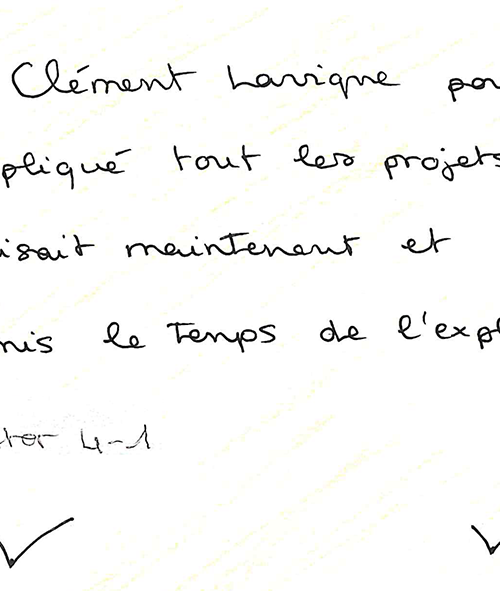 Clément Lavigne pou
pliqué tout les projets
isait maintenant et
mis le temps de l'expl
ter 4-1